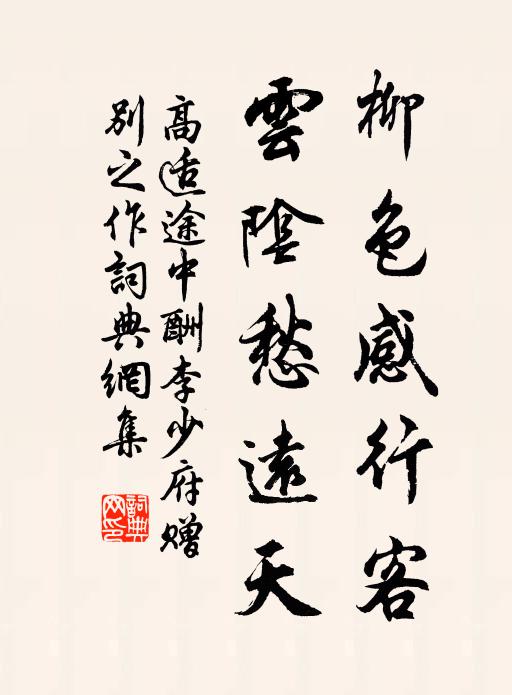 柳色感行客
雲陰愁遠天
高适途中酬李少府贈
別之作詞典網集
詞典
网印